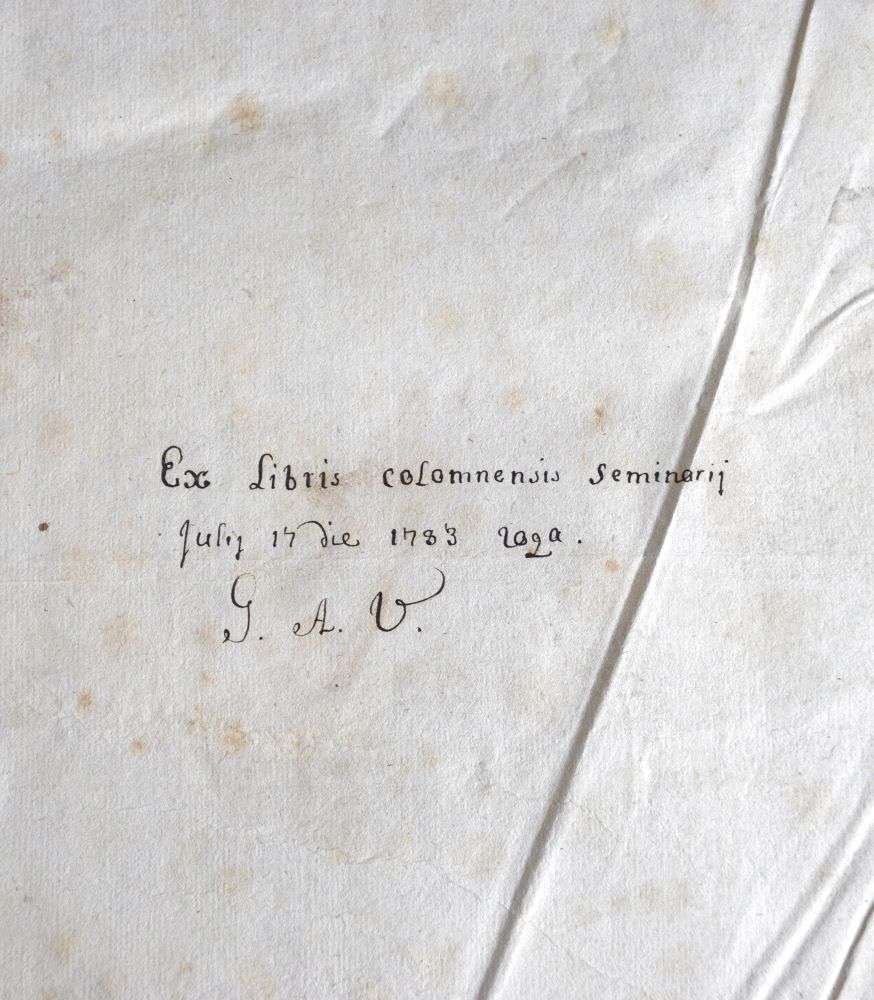 Ex Libris colomnensis seminarij
Julij 17 die 1783 года.
G. A. V.